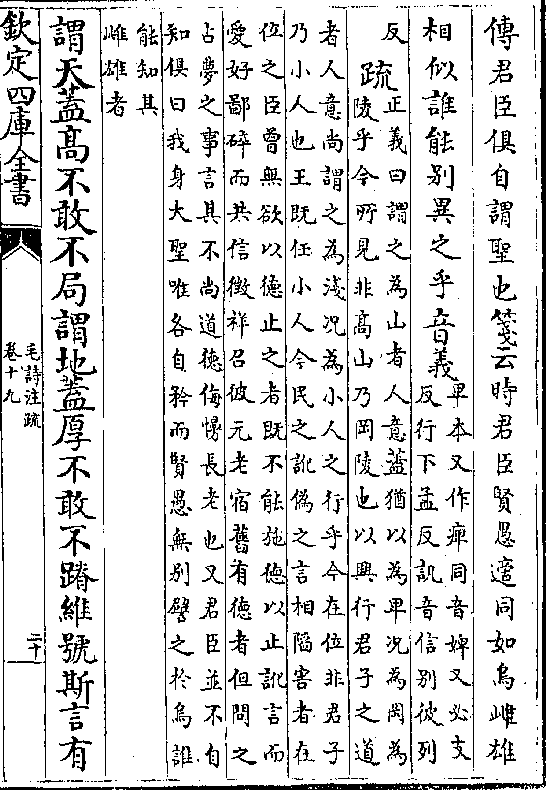 傳君臣俱自謂聖也箋云時君臣賢愚適同如烏雌雄
相似誰能别異之乎音義
卑本又作痺同音婢又必支
反行下孟反訊音信别彼列
反
疏
正義曰謂之為山者人意蓋猶以為卑况為岡為
陵乎今所見非髙山乃岡陵也以興行君子之道
者人意尚謂之為淺况為小人之行乎今在位非君子
乃小人也王既任小人今民之訛偽之言相陷害者在
位之臣曾無欲以徳止之者既不能施徳以止訛言而
愛好鄙碎而共信徴祥召彼元老宿舊有徳者但問之
占夢之事言其不尚道徳侮慢長老也又君臣並不自
知俱曰我身大聖唯各自矜而賢愚無别譬之於烏誰
能知其
雌雄者
謂天蓋髙不敢不局謂地蓋厚不敢不蹐維號斯言有
欽定四庫全書
毛詩注疏
卷十九
二十